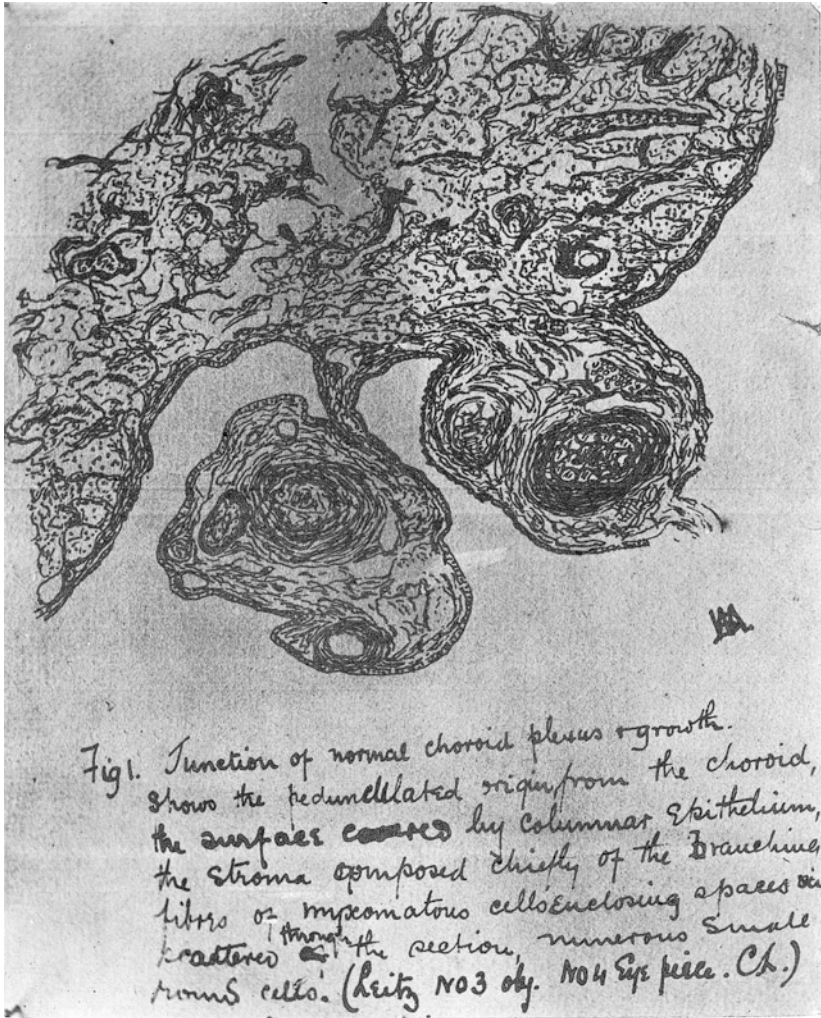 Fig 1. Junction of normal choroid plexus & growth.
Shows the pedunculated origin from the choroid,
the surface covered by columnar Epithelium,
the Stroma composed chiefly of the Branching
fibres of myxomatous cells Enclosing spaces
scattered through the section, numerous Small
round cells. (Leitz No 3 obj. No 4 Eye piece. Ch.)